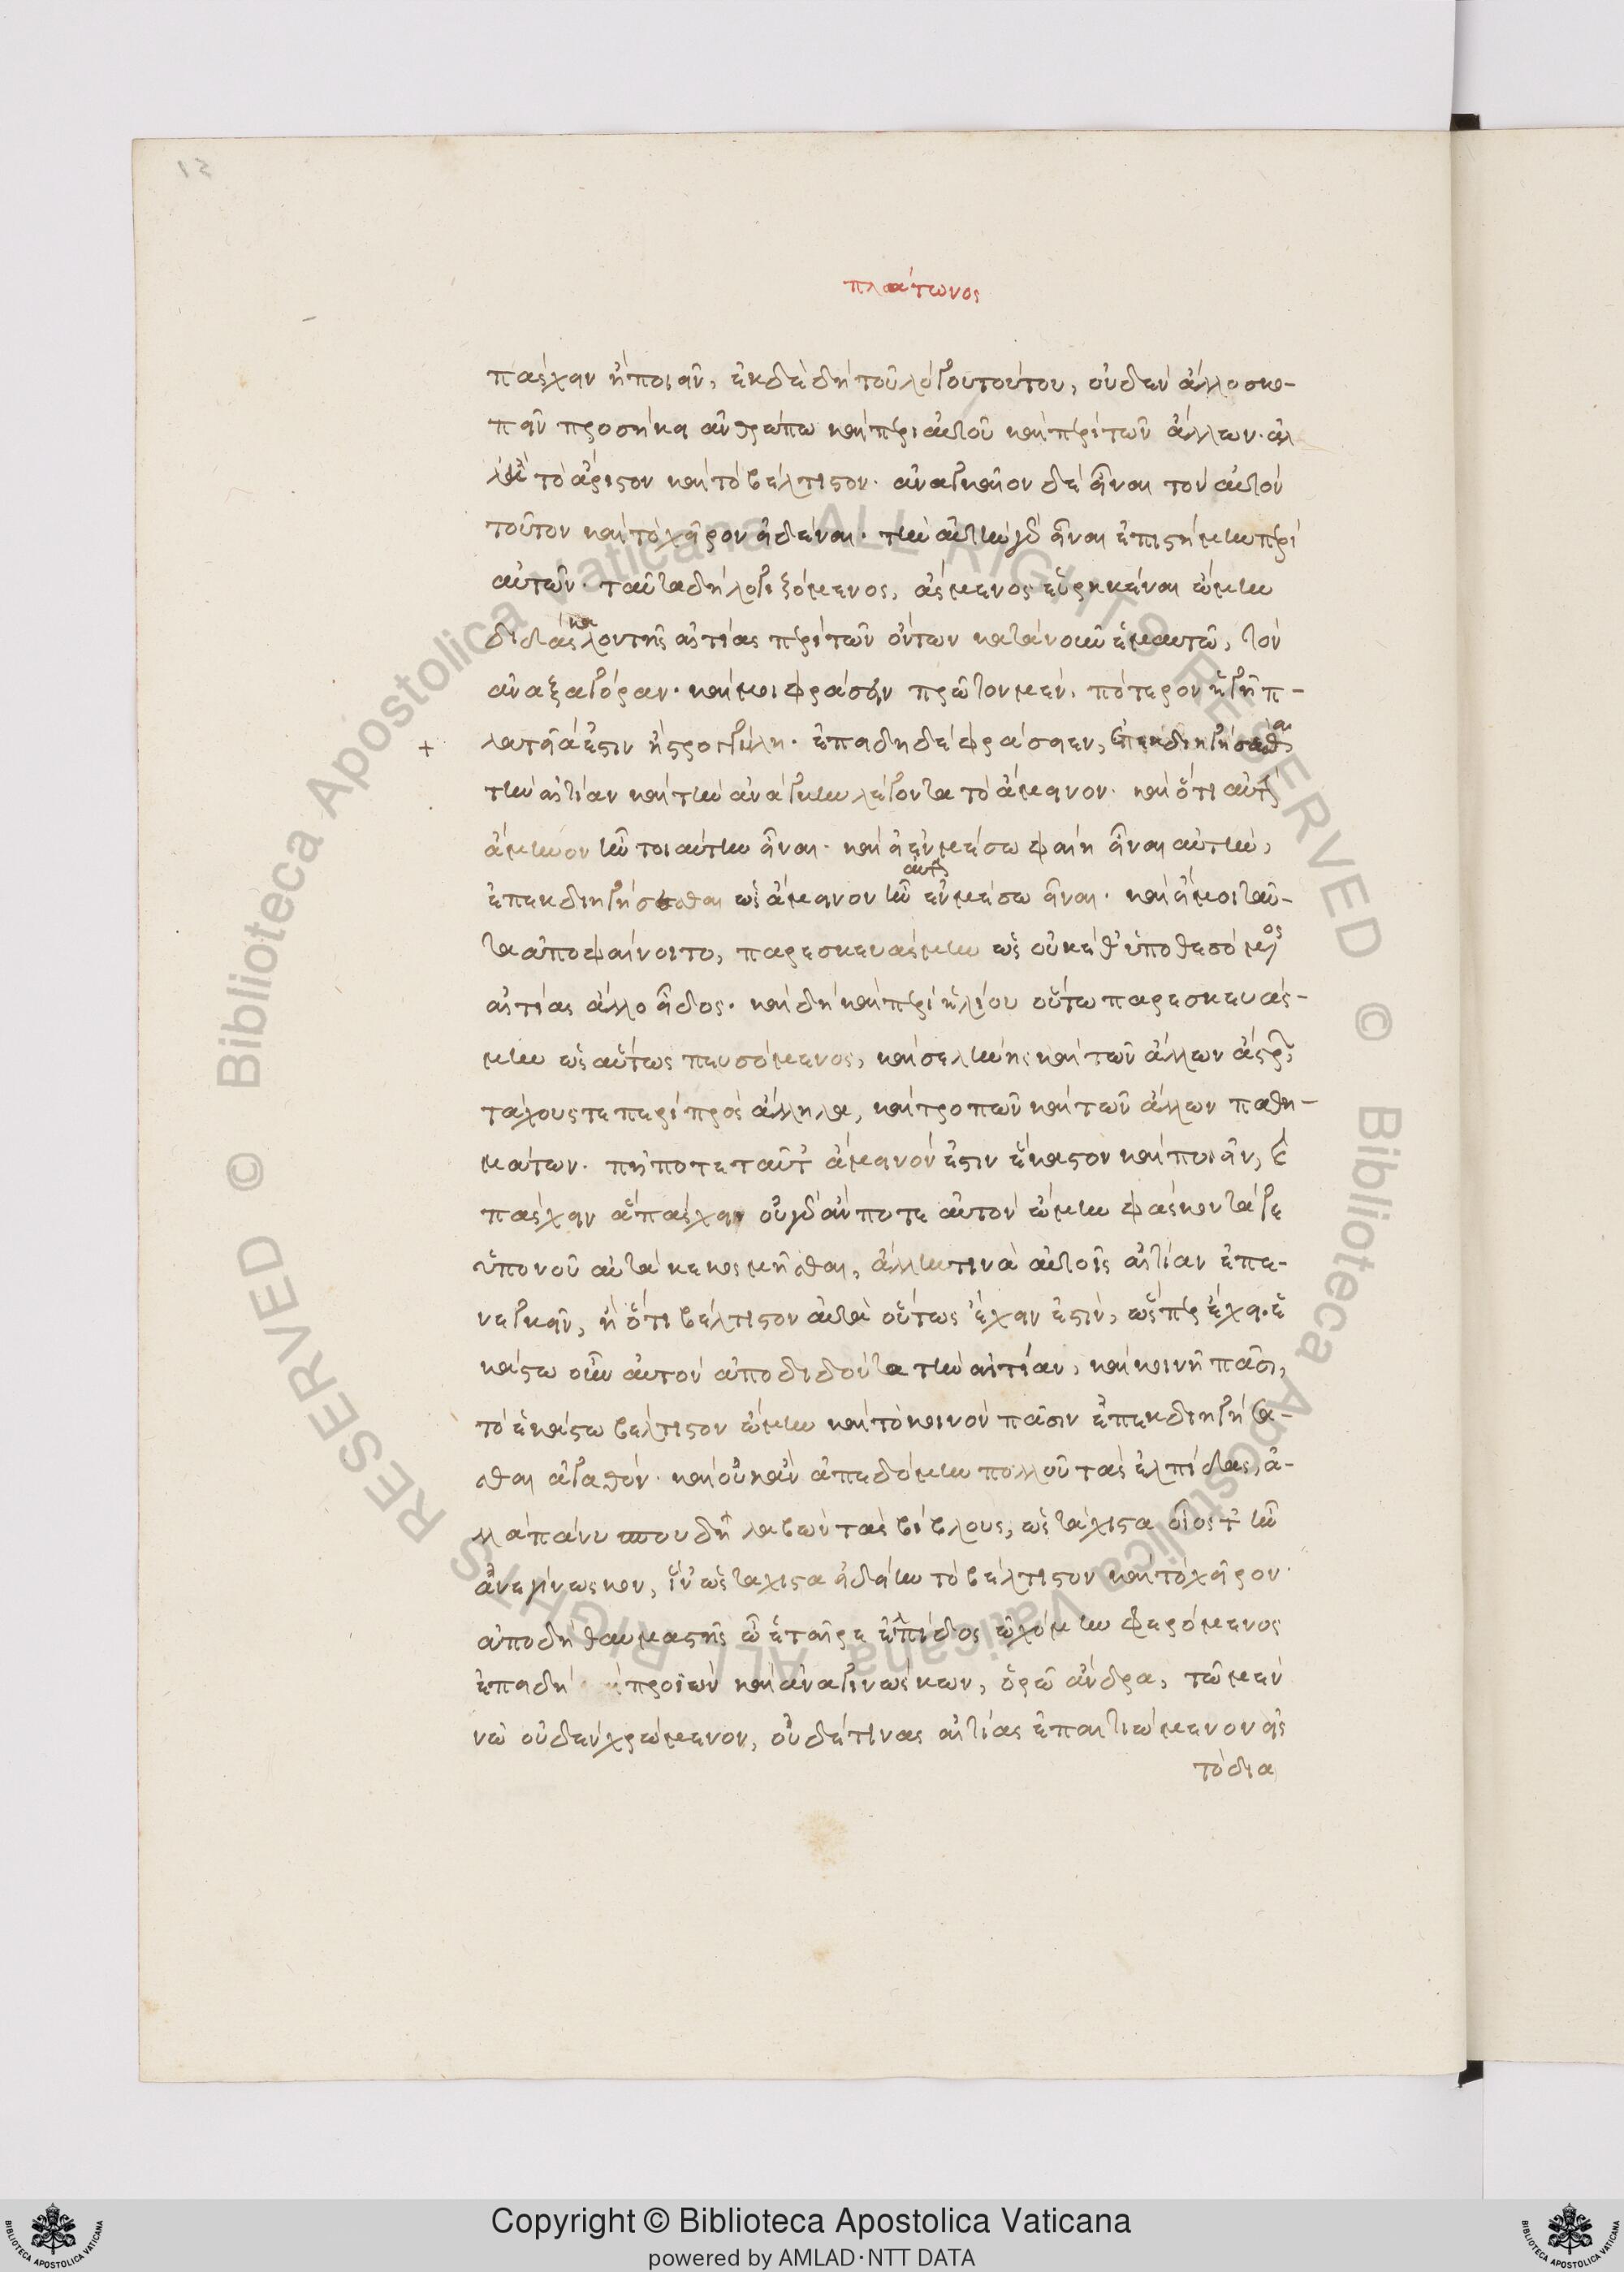 12
πλάτωνος
πάσχειν ἢ ποιεῖν, ἐκ δὲ δὴ τοῦ λόγου τούτου, οὐδὲν ἄλλο σκο-
πεῖν προσήκει ἀνθρώπω καὶ περὶ αὐτοῦ καὶ περὶ τῶν ἄλλων· ἀλ
λ' ἢ τὸ ἄριστον καὶ τὸ βέλτιστον· ἀναγκαῖον δὲ εἶναι τὸν αὐτὸν
τοῦτον καὶ τὸ χεῖρον εἰδέναι· τὴν αὐτὴν γὰρ εἶναι ἐπιστήμην περὶ
αὐτῶν· ταῦτα δὴ λογιζόμενος, ἄσμενος εὑρηκέναι ᾤμην
διδάσκαλον τῆς αἰτίας περὶ τῶν ὄντων κατὰ νοῦν ἐμαυτῶ, τὸν
ἀναξαγόραν· καί μοι φράσειν πρῶτον μὲν, πότερον ἡ γῆ π-
λατεῖά ἐστιν ἢ στρογγύλη· ἐπειδὴ δὲ φράσειεν, ἐπεκδιηγήσεσθαι
+
τὴν αἰτίαν καὶ τὴν ἀνάγκην λέγοντα τὸ ἄμεινον· καὶ ὅτι αὐτὴν
ἄμεινον ἦν τοιαύτην εἶναι· καὶ εἰ ἐν μέσω φαίη εἶναι αὐτὴν,
ἐπεκδιηγήσεσθαι ὡς ἄμεινον ἦν αὐτὴν ἐν μέσω εἶναι· καὶ εἴ μοι ταῦ-
τα ἀποφαίνοιτο, παρεσκευάσμην ὡς οὐκέθ' ὑποθεσόμενος
αἰτίας ἄλλο εἶδος· καὶ δὴ καὶ περὶ ἡλίου οὕτω παρεσκευάσ-
μην ὡσαύτως πευσόμενος, καὶ σελήνης καὶ τῶν ἄλλων ἄστρων
τάχους τε περὶ πρὸς ἄλληλα, καὶ τροπῶν καὶ τῶν ἄλλων παθη-
μάτων· πῆ ποτε ταῦτ' ἄμεινόν ἐστιν ἕκαστον καὶ ποιεῖν, καὶ
πάσχειν ἃ πάσχει οὐ γὰρ ἄν ποτε αὐτὸν ᾤμην φάσκοντά γε
ὑπὸ νοῦ αὐτὰ κεκοσμῆσθαι, ἄλλην τινὰ αὐτοῖς αἰτίαν ἐπε-
νεγκεῖν, ἢ ὅτι βέλτιστον αὐτὰ οὕτως ἔχειν ἐστὶν, ὥσπερ ἔχει· ἑ
κάστω οὖν αὐτὸν ἀποδιδόντα τὴν αἰτίαν, καὶ κοινῆ πᾶσι,
τὸ ἑκάστω βέλτιστον ᾤμην καὶ τὸ κοινὸν πᾶσιν ἐπεκδιηγήσα-
σθαι ἀγαθόν· καὶ οὐκ ἂν ἀπεδόμην πολλοῦ τὰς ἐλπίδας, ἀ-
λλὰ πάνυ σπουδῆ λαβὼν τὰς βίβλους, ὡς τάχιστα οἷός τ' ἦν
ἀνεγίνωσκον, ἵν' ὡς τάχιστα εἰδείην τὸ βέλτιστον καὶ τὸ χεῖρον·
ἀπὸ δὴ θαυμαστῆς ὦ ἑταῖρε ἐλπίδος ᾠχόμην φερόμενος
ἐπειδὴ προϊὼν καὶ ἀναγινώσκων, ὁρῶ ἄνδρα, τῶ μὲν
νῶ οὐδὲν χρώμενον, οὐδέ τινας αἰτίας ἐπαιτιώμενον εἰς
τὸ δια
Copyright © Biblioteca Apostolica Vaticana
powered by AMLAD·NTT DATA
© Biblioteca Apostolica Vaticana ALL RIGHTS RESERVED © Biblioteca Apostolica Vaticana ALL RIGHTS RESERVED
BIBLIOTECA APOSTOLICA VATICANA
BIBLIOTECA APOSTOLICA VATICANA